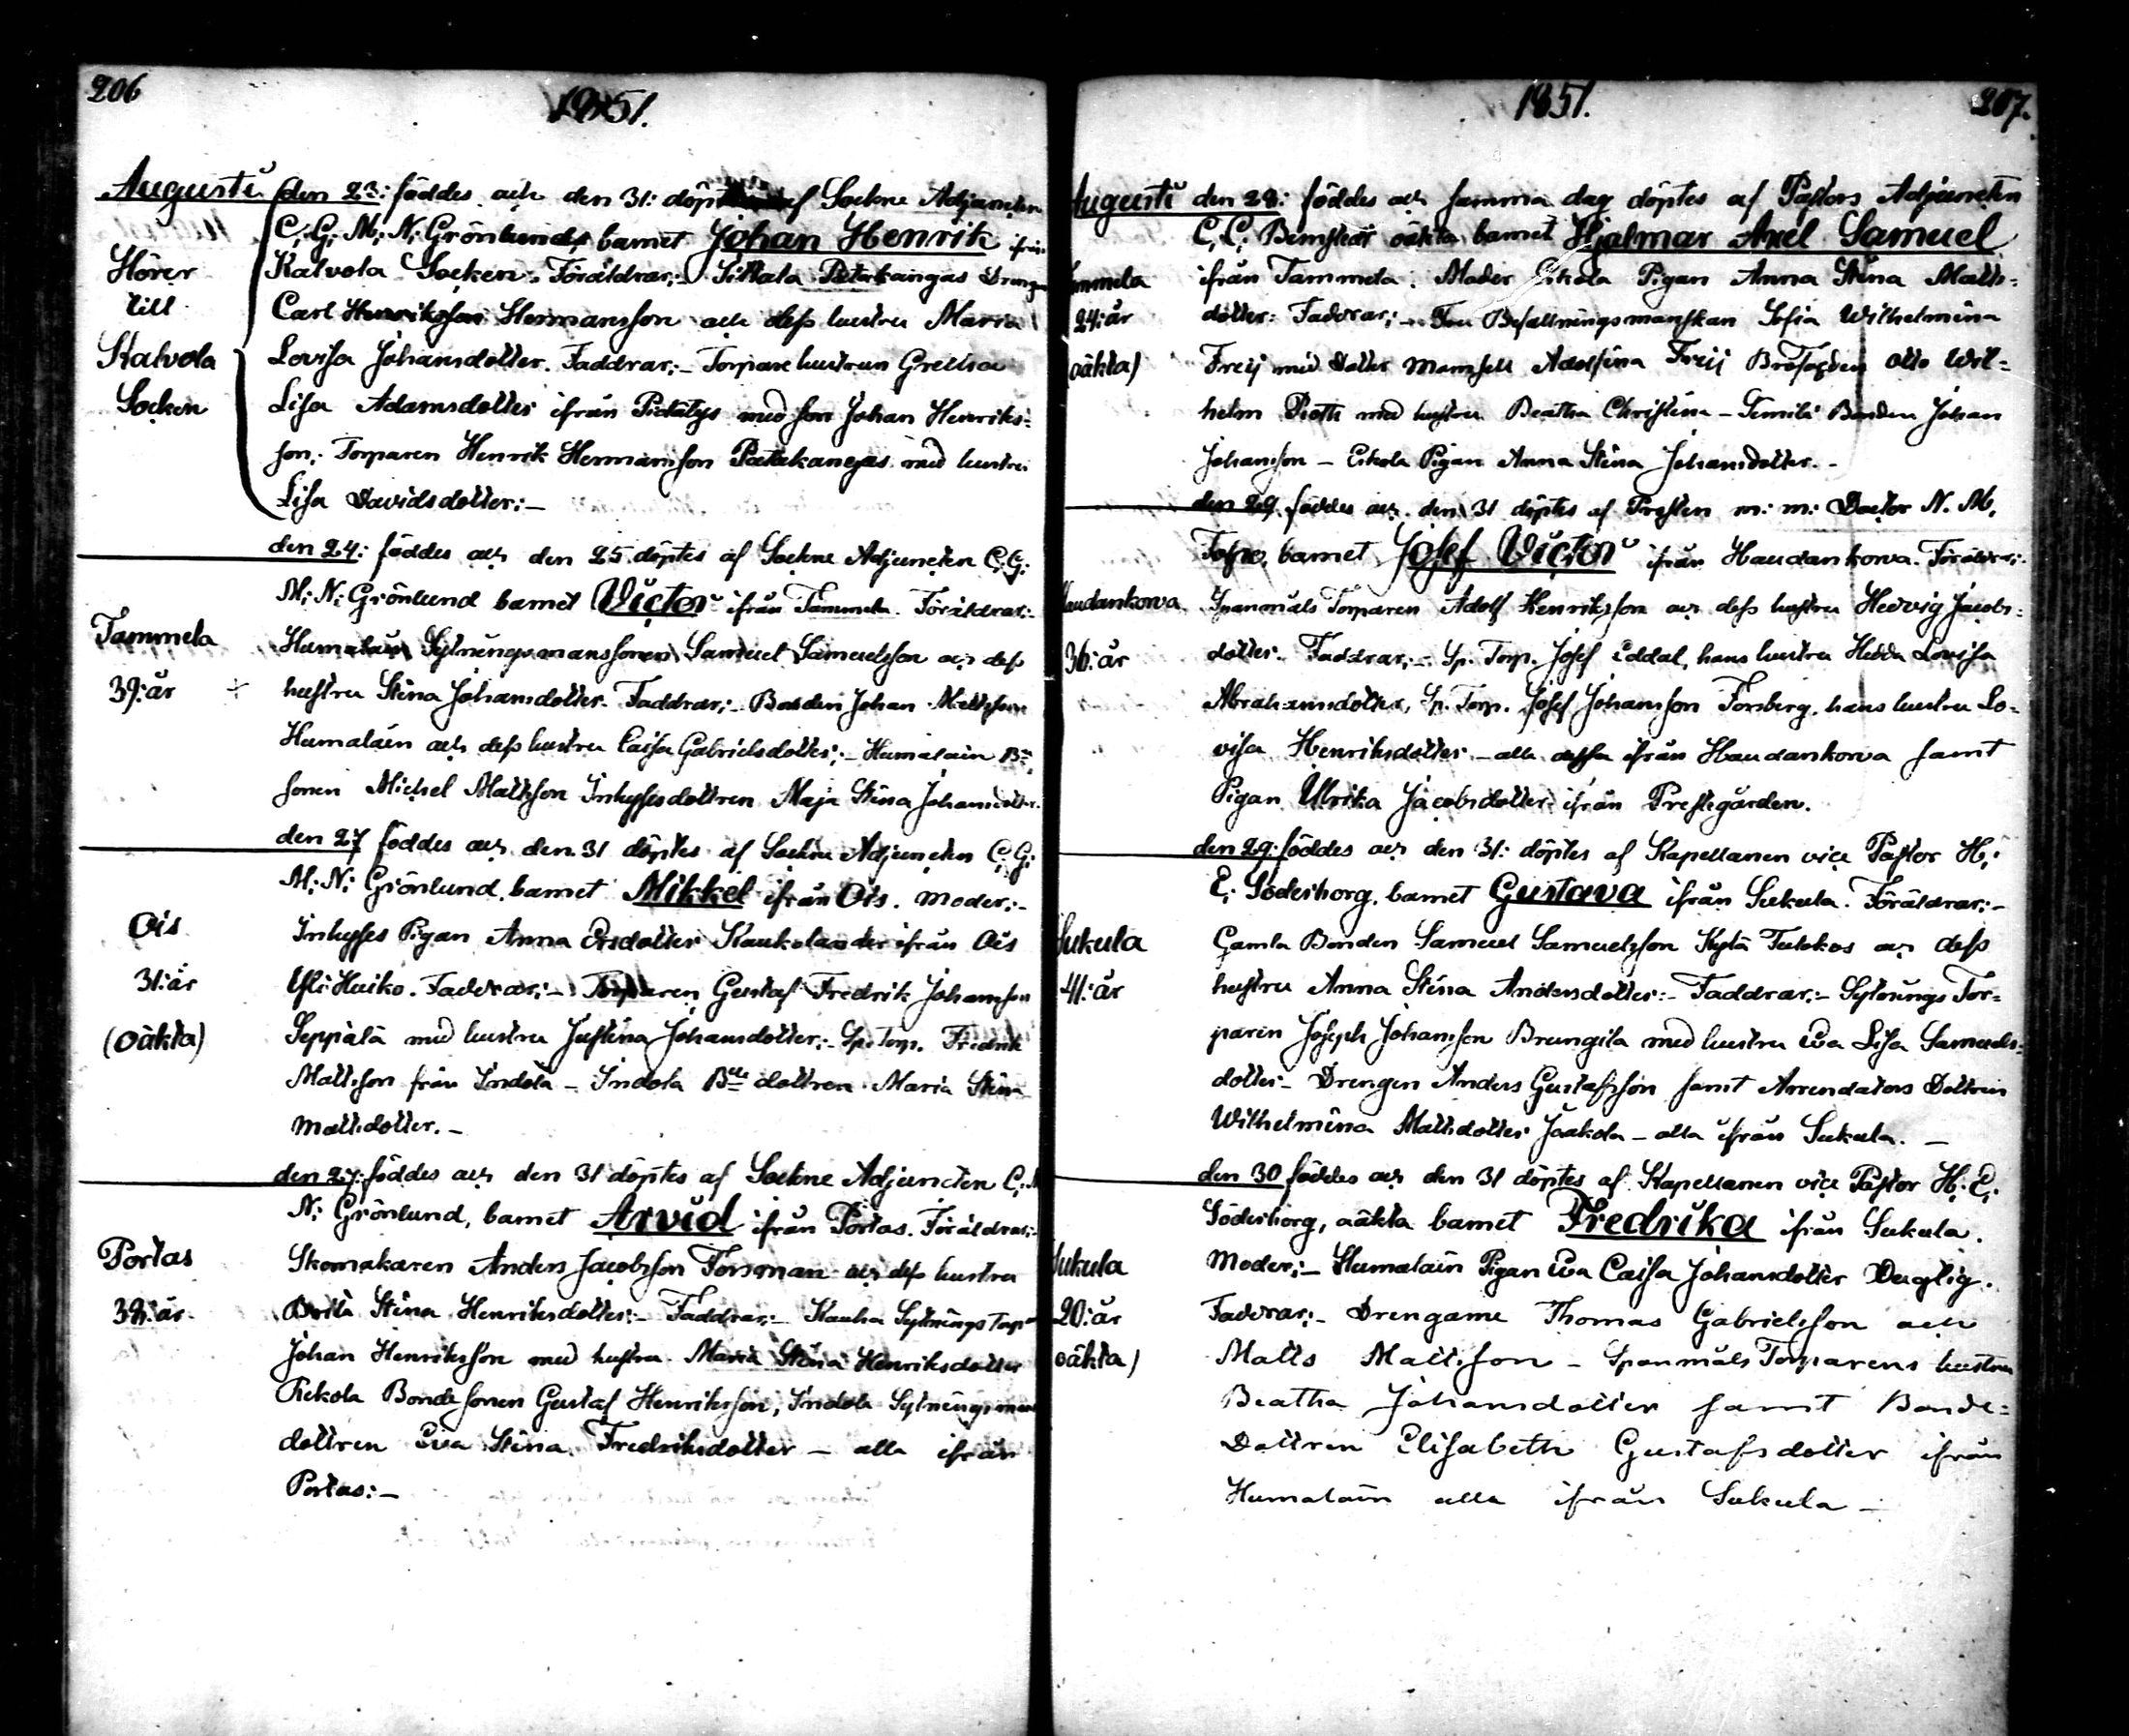 206
1851.
Augusti den 23: föddes och den 31: döptes af Sockne Adjuncten
C; G; M; N; Grönlund barnet Johan Henrik ifrån
Hörer
till
Kalvola
Socken
Kalvola Socken. Föräldrar:- Sittala Patakangas Drengen
Carl Hermansson och dess hustru Maria
Lovisa Johansdotter. Faddrar:- Torpare hustrun Gretha
Lisa Adamsdotter ifrån med son Johan Henriks-
son, Torparen Henrik Hermansson Patakangas med hustru
Lisa Davidsdotter:-
den 24: föddes och den 25 döptes af Sockne Adjuncten C; G;
M; N; Grönlund barnet Victor ifrån Tammela. Föräldrar:-
Tammela
39: år
Humalain Sytningsmanssonen Samuel Samuelsson och dess
hustru Stina Johansdotter. Faddrar:- Bonden Johan Mattsson
Humalain och dess hustru Caisa Gabrielsdotter;- Humalain Bde
sonen Michel Mattsson Inhyses dottren Maja Stina Johansdotter.
den 27 föddes och den 31 döptes af Sockne Adjuncten C; G;
M; N; Grönlund, barnet Mikkel ifrån Ois. Moder:-
Ois
31: år
(oäkta)
Inhyses Pigan Anna Ersdotter Kaukolander ifrån Ois
Ylli Huiko. Faddrar:- Torparen Gustaf Fredrik Johansson
Seppälä med hustru Justina Johansdotter;- Sp. Torp. Fredrik
Mattsson från Indola - Indola Bde dottren Maria Stina
Mattsdotter.-
den 27: föddes och den 31 döptes af Sockne Adjuncten C; M
N; Grönlund, barnet Arvid ifrån Portas. Föräldrar:-
Portas
38: år.
Skomakaren Anders Jacobsson Forsman och dess hustru
Brita Stina Henriksdotter:- Faddrar:- Kauha Sytnings Torp
Johan Henriksson med hustru Maria Stina Henriksdotter
Rekola Bondesonen Gustaf Henriksson, Indola Sytningsmans
dottren Eva Stina Fredriksdotter - alla ifrån
Portas:-
1851.
207.
Augusti den 28: föddes och samma dag döptes af Pastors Adjuncten
C, C; oäkta barnet Hjalmar Axel Samuel
Tammela
24: år
oäkta)
ifrån Tammela. Moder Eskola Pigan Anna Stina Matts-
dotter. Faddrar:- Fru Befallningsmanskan Sofia Wilhelmina
Freij med Dotter Mamsell Adolfina Freij Brofogden Otto Wil-
helm Roth med hustru Beatha Christina - Bonden Johan
Johansson - Eskola Pigan Anna Stina Johansdotter.-
den 29. föddes och den 31 döptes af Prosten m: m: Doctor N. M.
Tolpo, barnet Josef Victor ifrån Haudankorva. Föräldrar:
Haudankorva
36: år
Spanmåls Torparen Adolf Henriksson och dess hustru Hedvig Jacobs-
dotter. Faddrar:- Sp. Torp. Josef Eddal, hans hustru Hedda Lovisa
Abrahamsdotter, Sp. Torp. Josef Johansson Forsberg, hans hustru Lo-
visa Henriksdotter - alla dessa ifrån Haudankorva samt
Pigan Ulrika Jacobsdotter ifrån Prestegården.
den 29: föddes och den 31: döptes af Kapellanen vice Pastor H;
E; Söderborg, barnet Gustava ifrån Sukula. Föräldrar:-
Sukula
41: år
Gamla Bonden Samuel Samuelsson Kylä Tulokos och dess
hustru Anna Stina Andersdotter:- Faddrar:- Sytnings Tor-
paren Joseph Johansson Brungila med hustru Eva Lisa Samuels-
dotter- Drengen Anders Gustafsson samt Arrendators Dottren
Wilhelmina Mattsdotter Jaakola - alla ifrån Sukula.-
den 30 föddes och den 31 döptes af Kapellanen vice Pastor H. E.
Söderborg, oäkta barnet Fredrika ifrån Sukula.
Sukula
20: år
oäkta)
Moder:- Humalain Pigan Eva Caisa Johansdotter Duglig.
Faddrar:- Drengarne Thomas Gabrielsson och
Matts Mattsson - Spanmåls Torparens hustru
Beatha Johansdotter samt Bonde-
Dottren Elisabeth Gustafsdotter ifrån
Humalain alla ifrån Sukula -